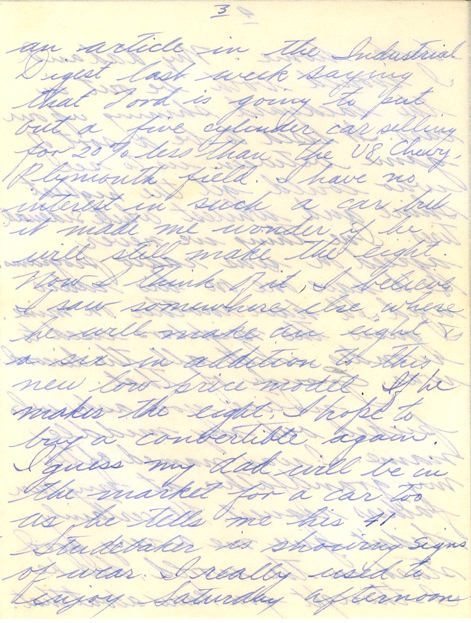 3
an article in the Industrial
Digest last week saying
that Ford is going to put
out a five cylinder car selling
for 20% less than the V8, Chevy,
Plymouth field. I have no
interest in such a car but
it make me wonder if he
will still make the eight.
Now I think of it, I believe
I saw somewhere else where
he will make an eight &
a six in addition to this
new low price model. If he
makes the eight, I hope to
buy a convertible again.
I guess my dad will be in
the market for a car too
as he tells me his 41
Studebaker is showing signs
of wear. I really used to
enjoy Saturday afternoons